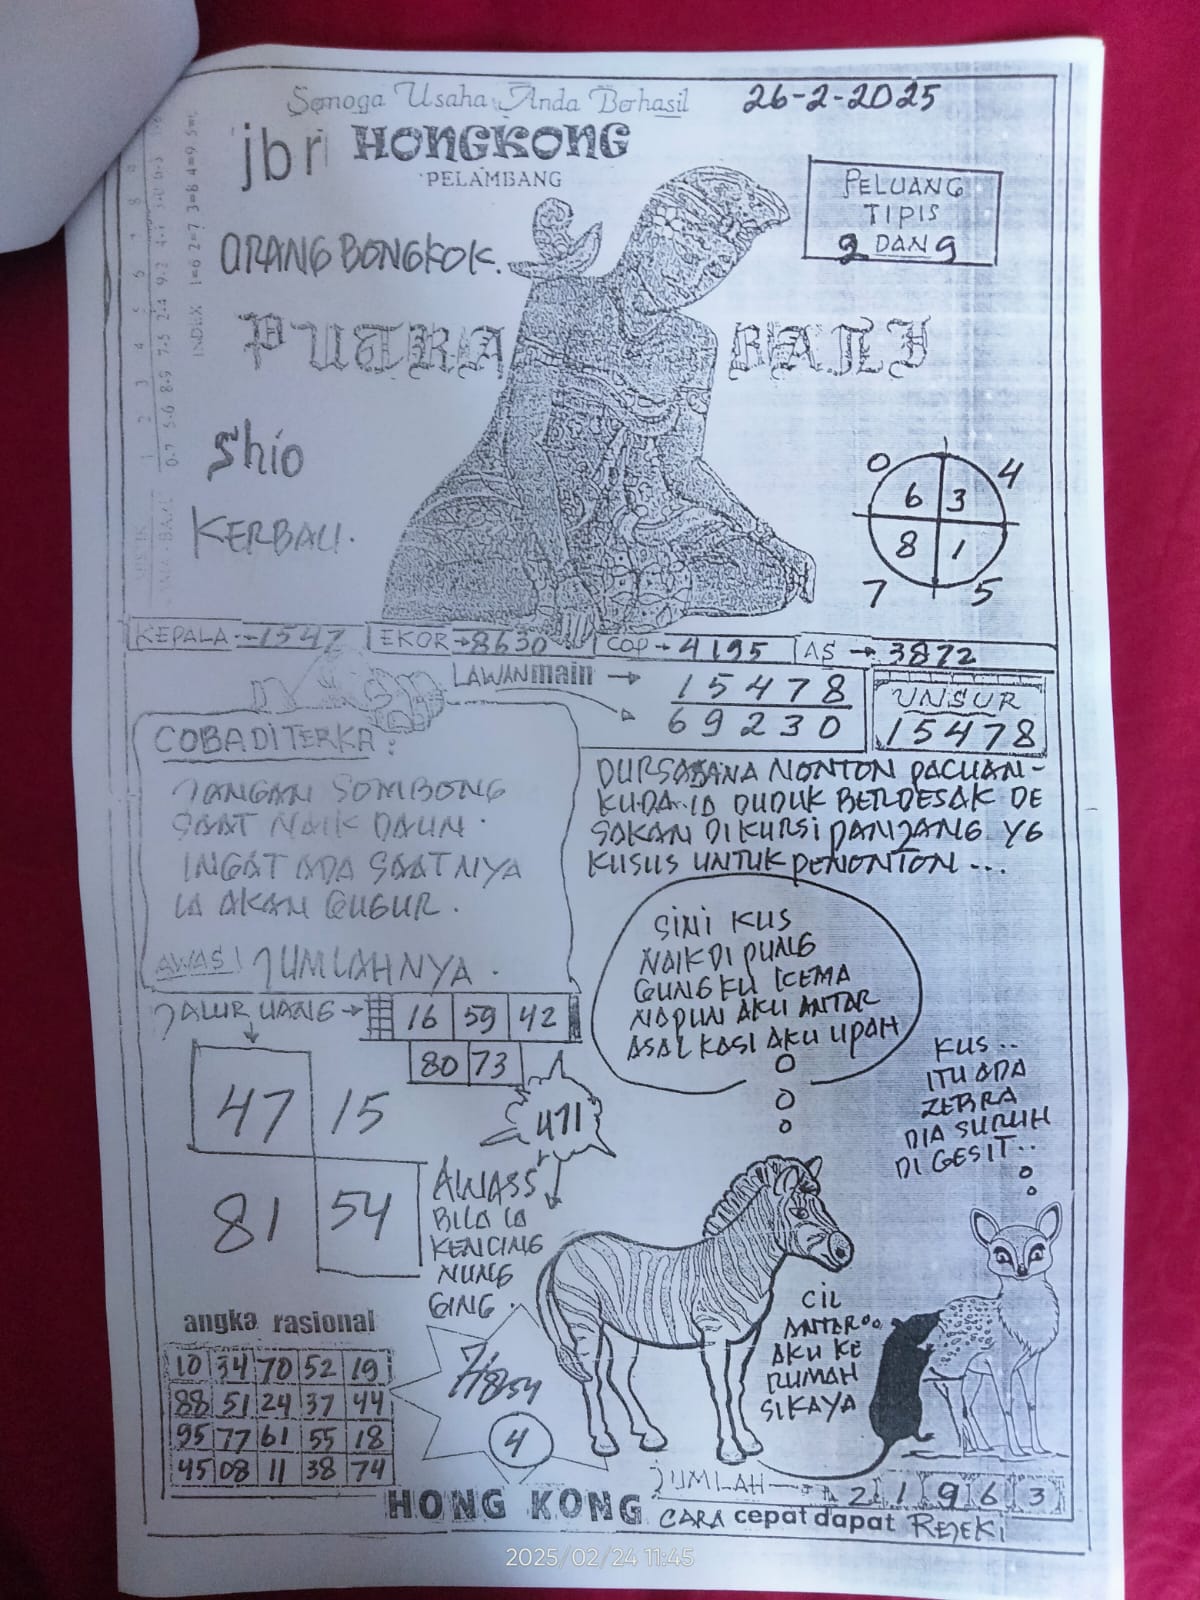 Semoga Usaha Anda Berhasil
26-2-2025
jbr HONGKONG
PELAMBANG
PELUANG
TIPIS
2 DAN 9
ORANG BONGKOK.
PUTRA BALI
Shio
KERBAU.
INDEX 1=6 2=7 3=8 4=9 5=
0 4
6 3
8 1
7 5
KEPALA 1547 EKOR→8630 COP→4195 AS→3872
LAWAN main → 15478
69230
UNSUR
15478
COBA DITERKA:
JANGAN SOMBONG
SAAT NAIK DAUN.
INGAT ADA SAATNYA
IA AKAN GUGUR.
AWAS! JUMLAHNYA.
DURSASANA NONTON PACUAN-
KUDA..IA DUDUK BERDESAK DE
SAKAN DI KURSI PANJANG YG
KUSUS UNTUK PENONTON...
SINI KUS
NAIK DI PUNG
GUNGKU KEMA
NAPUN AKU ANTAR
ASAL KASI AKU UPAH
JALUR UANG→ 16 59 42
80 73
47 15
81 54
471
AWASS
BILA IA
KENCING
NUNG
GING.
KUS..
ITU ADA
ZEBRA
DIA SURUH
DI GESIT..
CIL
ANTAR
AKU KE
RUMAH
SIKAYA
angka rasional
10 34 70 52 19
88 51 24 37 44
95 77 61 55 18
45 08 11 38 74
4
JUMLAH→ 2 1 9 6 3
HONG KONG CARA cepat dapat REJEKI
2025/02/24 11:45